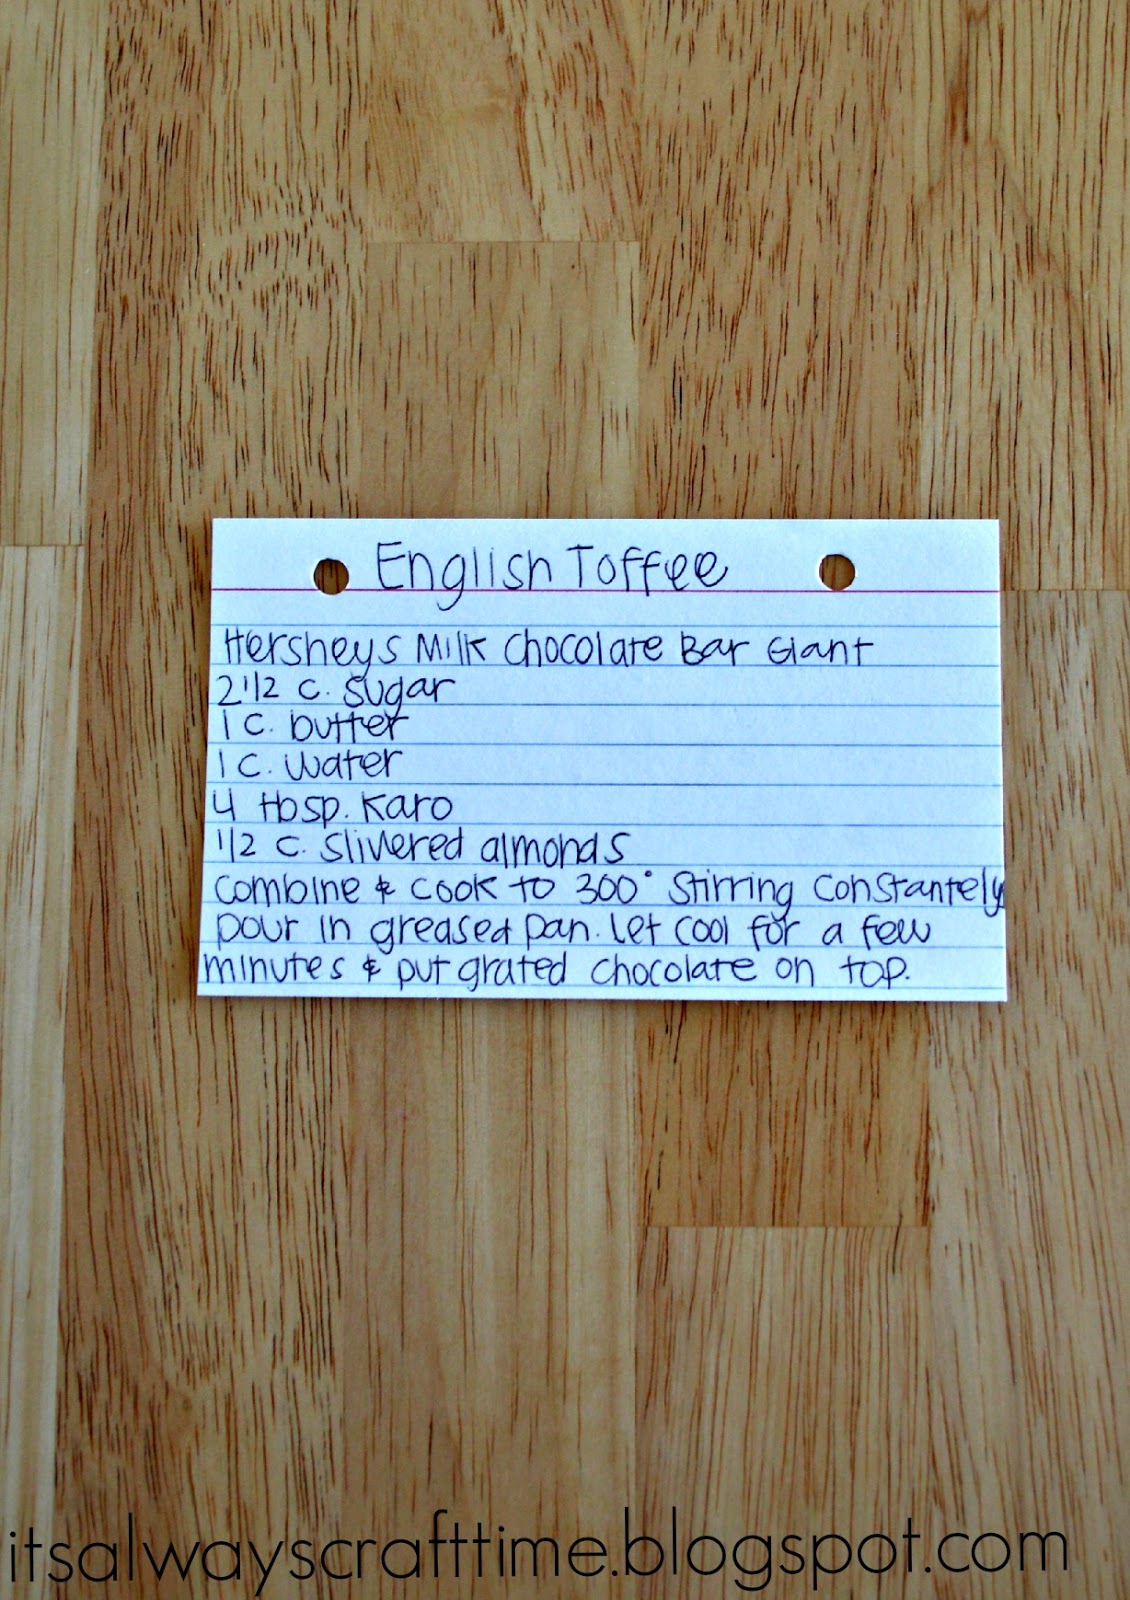 English Toffee
Hersheys Milk Chocolate Bar Giant
2 1/2 c. sugar
1 c. butter
1 c. water
4 tbsp. Karo
1/2 c. slivered almonds
combine & cook to 300° stirring constantely
pour in greased pan. let cool for a few
minutes & put grated chocolate on top.
itsalwayscrafttime.blogspot.com